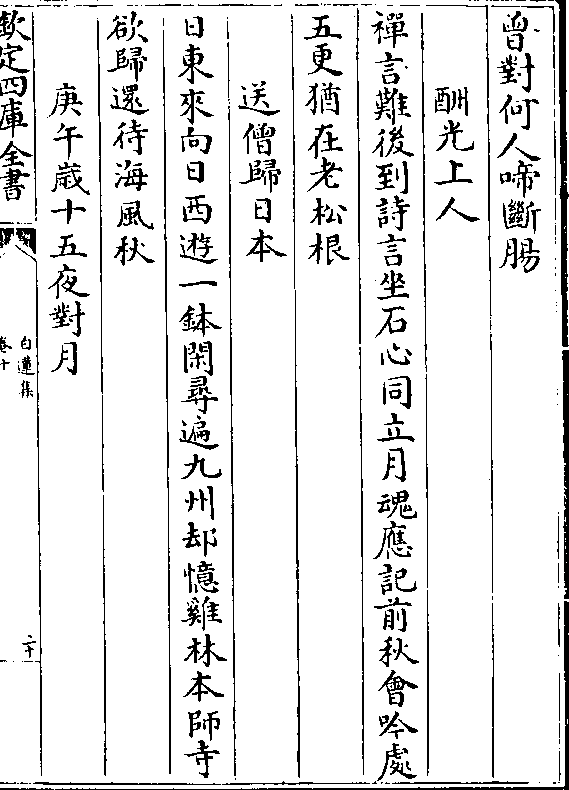 曾對何人啼斷腸
酬光上人
禪言難後到詩言坐石心同立月魂應記前秋會吟處
五更猶在老松根
送僧歸日本
日東來向日西遊一鉢閑尋遍九州却憶雞林本師寺
欲歸還待海風秋
庚午嵗十五夜對月
欽定四庫全書
白蓮集
卷十
二十